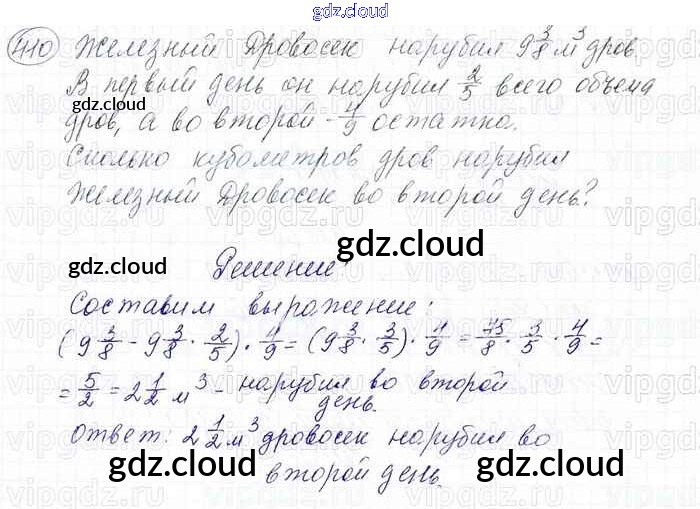 gdz.cloud
410 Железный Дровосек нарубил 9 3/8 м³ дров,
В первый день он нарубил 2/5 всего объема
gdz.cloud
дров, а во второй - 4/9 остатка.
Сколько кубометров дров нарубил
Железный Дровосек во второй день?
gdz.cloud
gdz.cloud
Решение
Составим выражение:
(9 3/8 - 9 3/8 · 2/5) · 4/9 = (9 3/8 · 3/5) · 4/9 = 75/8 · 3/5 · 4/9 =
= 5/2 = 2 1/2 м³ - нарубил во второй
день.
gdz.cloud
Ответ: 2 1/2 м³ дровосек нарубил во
второй день.
gdz.cloud
gdz.cloud